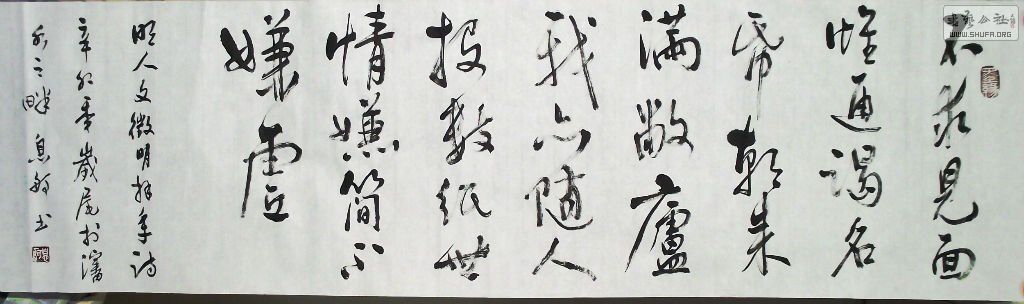 不求見面
惟通謁名
帋朝来
滿敝廬
我亦随人
投数纸世
情嫌簡不
嫌虚
明人文徵明拜年詩
辛卯秊歲尾於瀋
水之畔 息 书
書藝公社
WWW.SHUFA.ORG